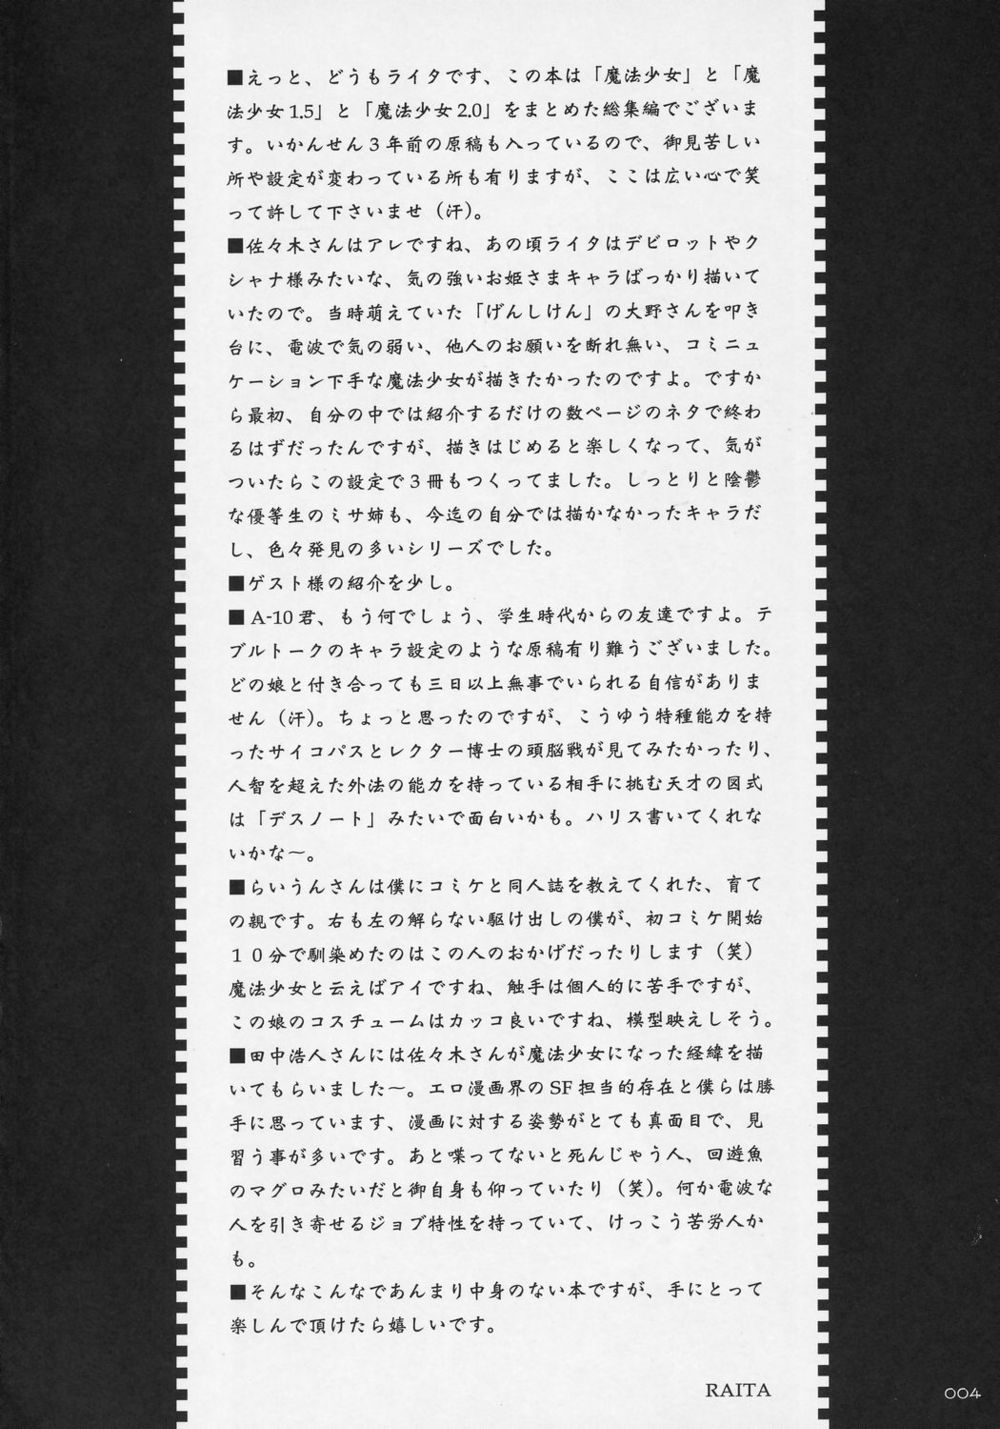 ■えっと、どうもライタです、この本は「魔法少女」と「魔
法少女1.5」と「魔法少女2.0」をまとめた総集編でございま
す。いかんせん３年前の原稿も入っているので、御見苦しい
所や設定が変わっている所も有りますが、ここは広い心で笑
って許して下さいませ（汗）。
■佐々木さんはアレですね、あの頃ライタはデビロットやク
シャナ様みたいな、気の強いお姫さまキャラばっかり描いて
いたので。当時萌えていた「げんしけん」の大野さんを叩き
台に、電波で気の弱い、他人のお願いを断れ無い、コミニュ
ケーション下手な魔法少女が描きたかったのですよ。ですか
ら最初、自分の中では紹介するだけの数ページのネタで終わ
るはずだったんですが、描きはじめると楽しくなって、気が
ついたらこの設定で３冊もつくってました。しっとりと陰鬱
な優等生のミサ姉も、今迄の自分では描かなかったキャラだ
し、色々発見の多いシリーズでした。
■ゲスト様の紹介を少し。
■A-10君、もう何でしょう、学生時代からの友達ですよ。テ
ブルトークのキャラ設定のような原稿有り難うございました。
どの娘と付き合っても三日以上無事でいられる自信がありま
せん（汗）。ちょっと思ったのですが、こうゆう特種能力を持
ったサイコパスとレクター博士の頭脳戦が見てみたかったり、
人智を超えた外法の能力を持っている相手に挑む天才の図式
は「デスノート」みたいで面白いかも。ハリス書いてくれな
いかな〜。
■らいうんさんは僕にコミケと同人誌を教えてくれた、育て
の親です。右も左の解らない駆け出しの僕が、初コミケ開始
１０分で馴染めたのはこの人のおかげだったりします（笑）
魔法少女と云えばアイですね、触手は個人的に苦手ですが、
この娘のコスチュームはカッコ良いですね、模型映えしそう。
■田中浩人さんには佐々木さんが魔法少女になった経緯を描
いてもらいました〜。エロ漫画界のSF担当的存在と僕らは勝
手に思っています、漫画に対する姿勢がとても真面目で、見
習う事が多いです。あと喋ってないと死んじゃう人、回遊魚
のマグロみたいだと御自身も仰っていたり（笑）。何か電波な
人を引き寄せるジョブ特性を持っていて、けっこう苦労人か
も。
■そんなこんなであんまり中身のない本ですが、手にとって
楽しんで頂けたら嬉しいです。
RAITA
004